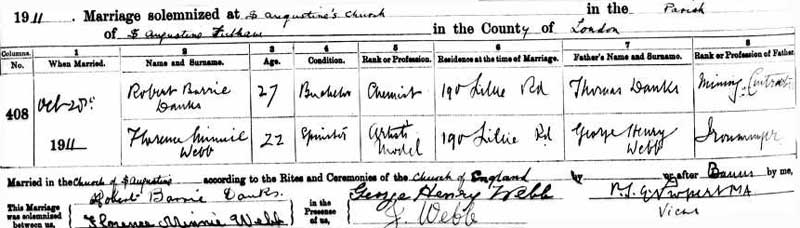 1911. Marriage solemnized at S Augustine's Church in the Parish
of S Augustine Fulham in the County of London
Columns. 1 2 3 4 5 6 7 8
No. When Married. Name and Surname. Age. Condition. Rank or Profession. Residence at the time of Marriage. Father's Name and Surname. Rank or Profession of Father.
408 Oct 1911 Robert Barrie Danks 27 Bachelor Chemist 190 Lillie Rd Thomas Danks Mining Contractor
Florence Minnie Webb 22 Spinster Artist's Model 190 Lillie Rd George Henry Webb Ironmonger
Married in the Church of S Augustine according to the Rites and Ceremonies of the Church of England by or after Banns by me,
This Marriage was solemnized between us, Robert Barrie Danks. in the Presence of us, George Henry Webb Vicar
Florence Minnie Webb J. Webb